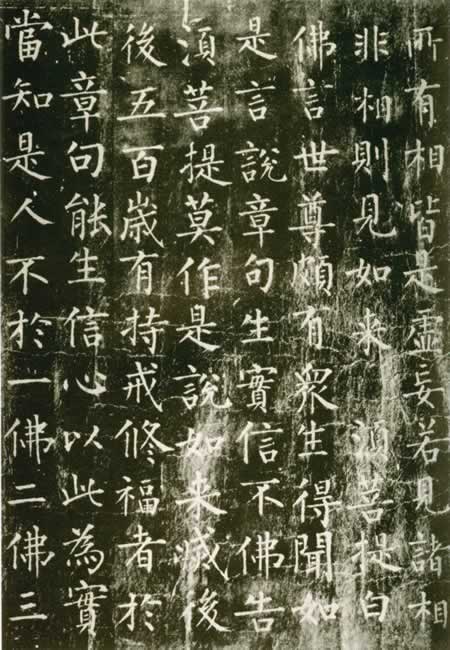 所有相皆是虛妄若見諸相
非相則見如来 須菩提白
佛言世尊頗有衆生得聞如
是言說章句生實信不佛告
須菩提莫作是說如来滅後
後五百歲有持戒修福者於
此章句能生信心以此為實
當知是人不於一佛二佛三